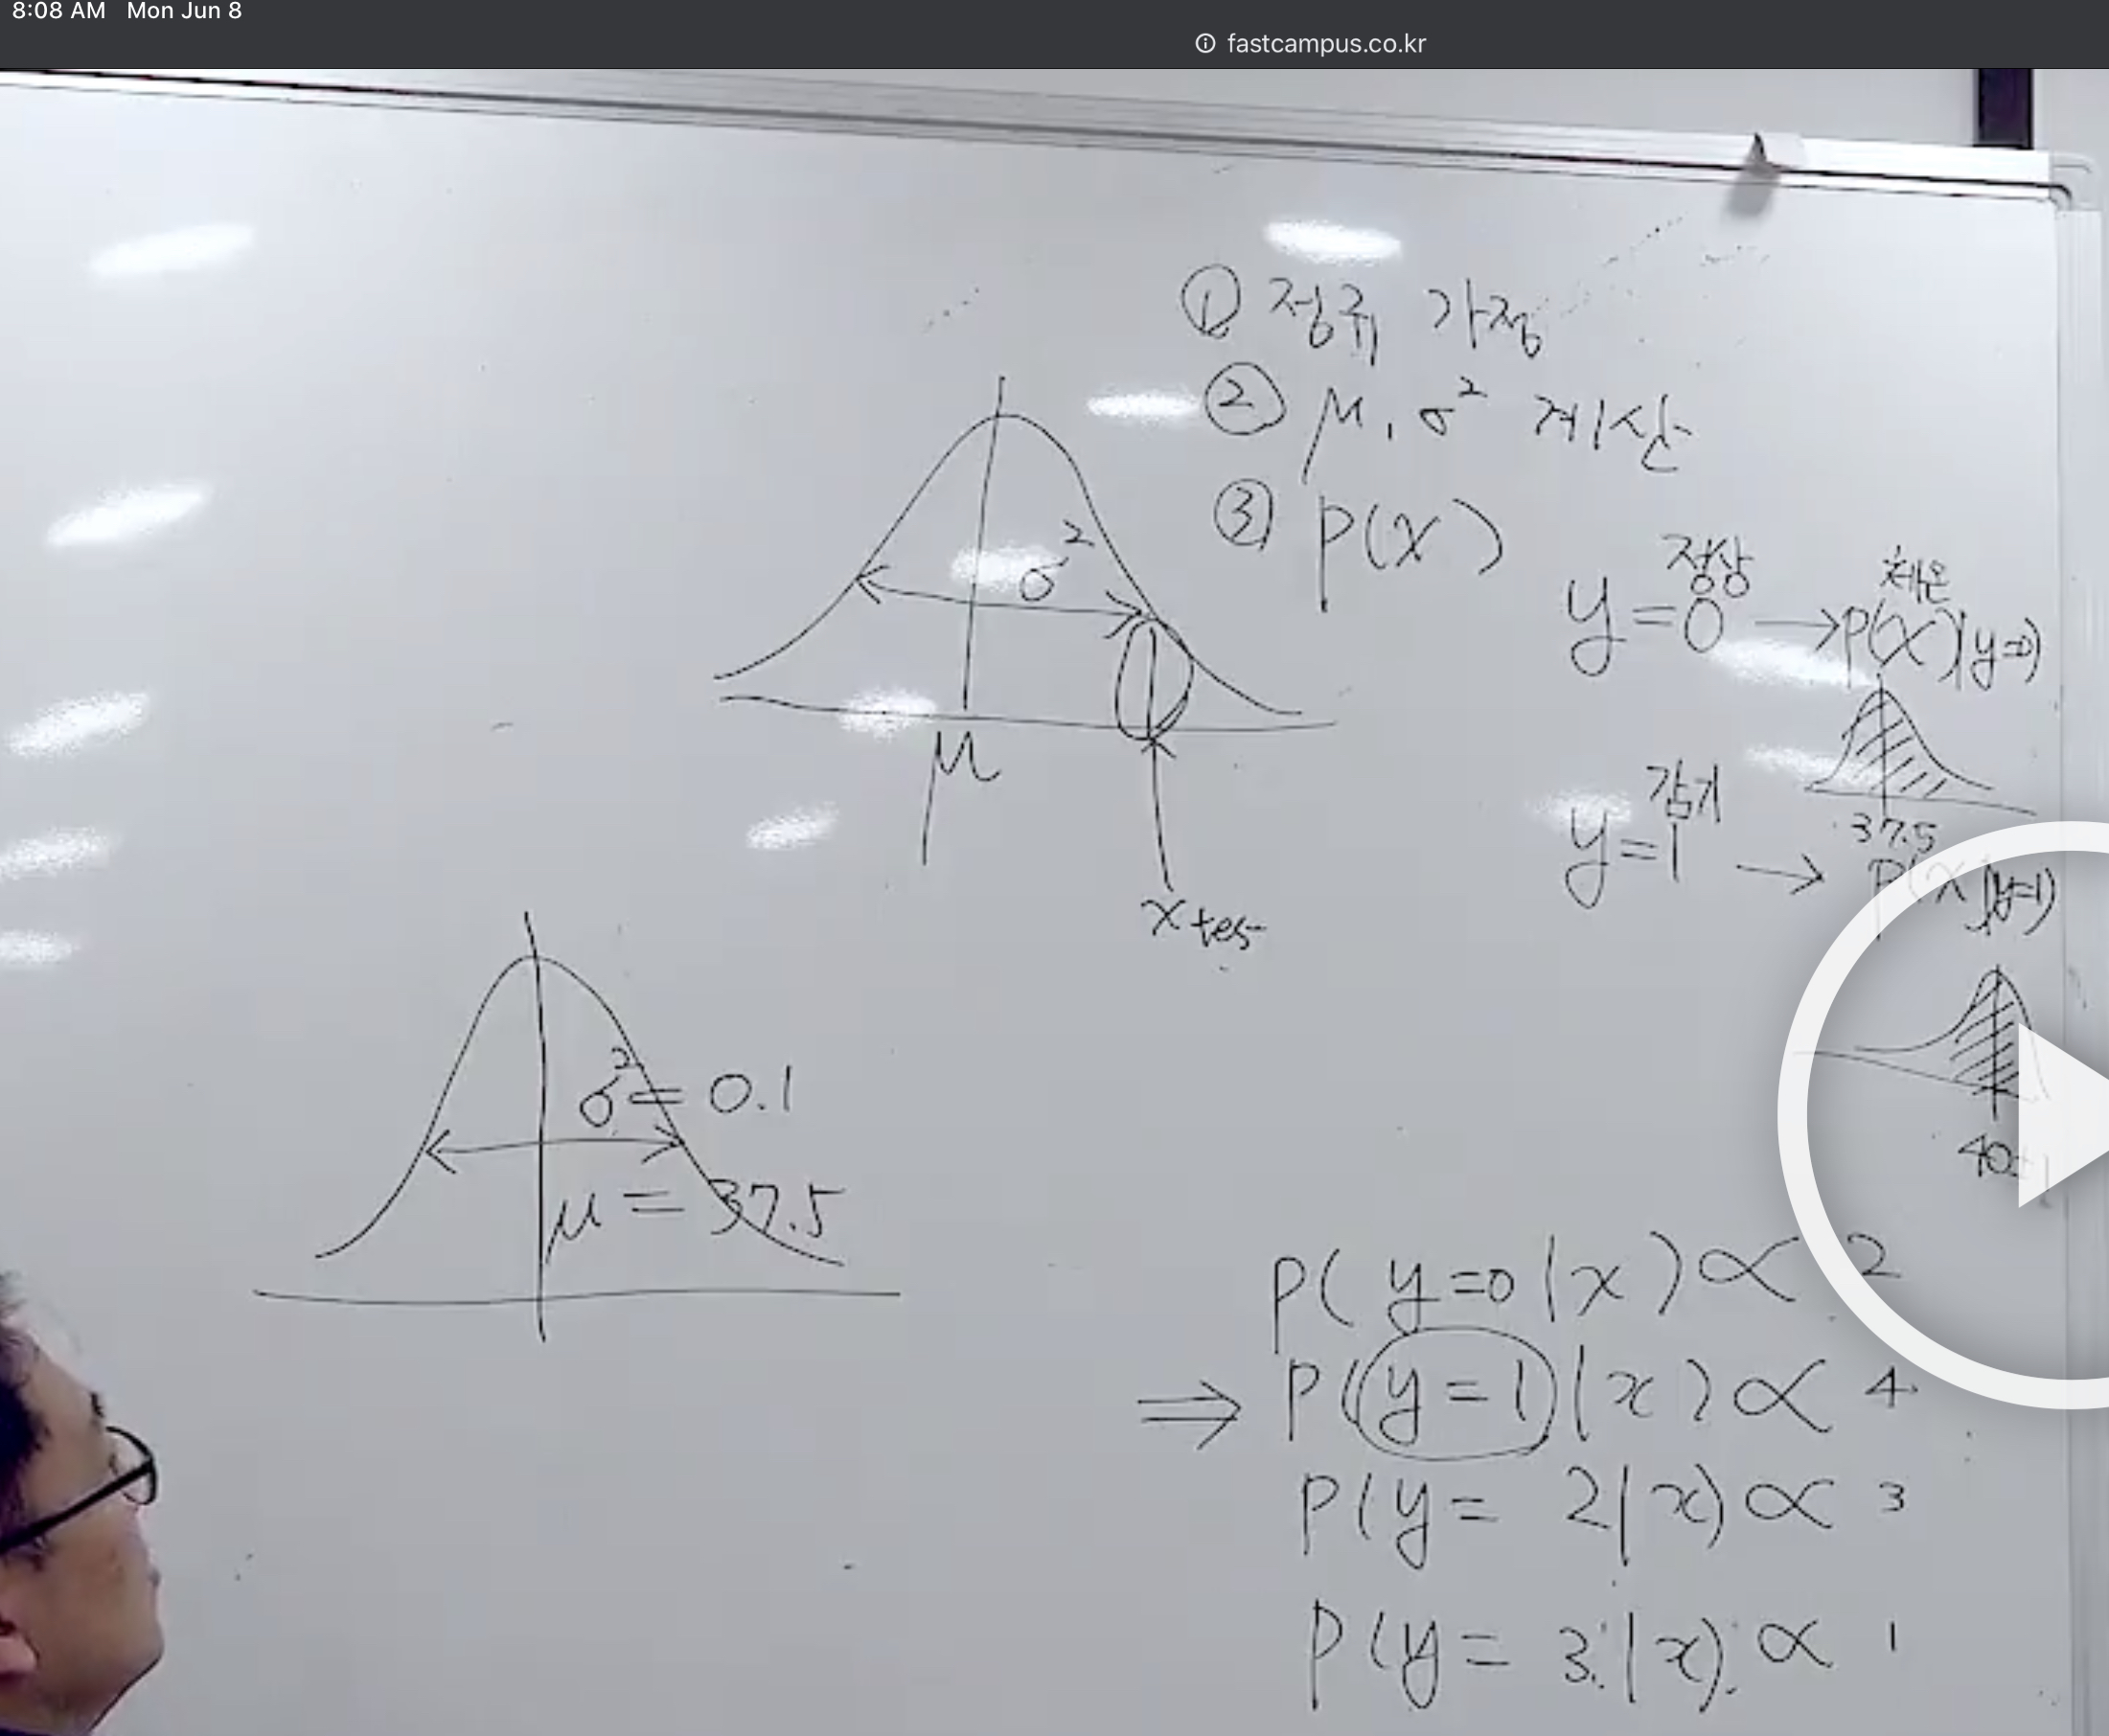 8:08 AM Mon Jun 8
fastcampus.co.kr
① 정규 가정
② μ, σ² 계산
③ p(x)
σ²
μ
x tes
정상 체온
y=0 → p(x|y=0)
37.5
감기
y=1 → p(x|y=1)
σ² = 0.1
μ = 37.5
P(y=0|x) ∝ 2
⇒ P(y=1|x) ∝ 4
P(y=2|x) ∝ 3
P(y=3|x) ∝ 1